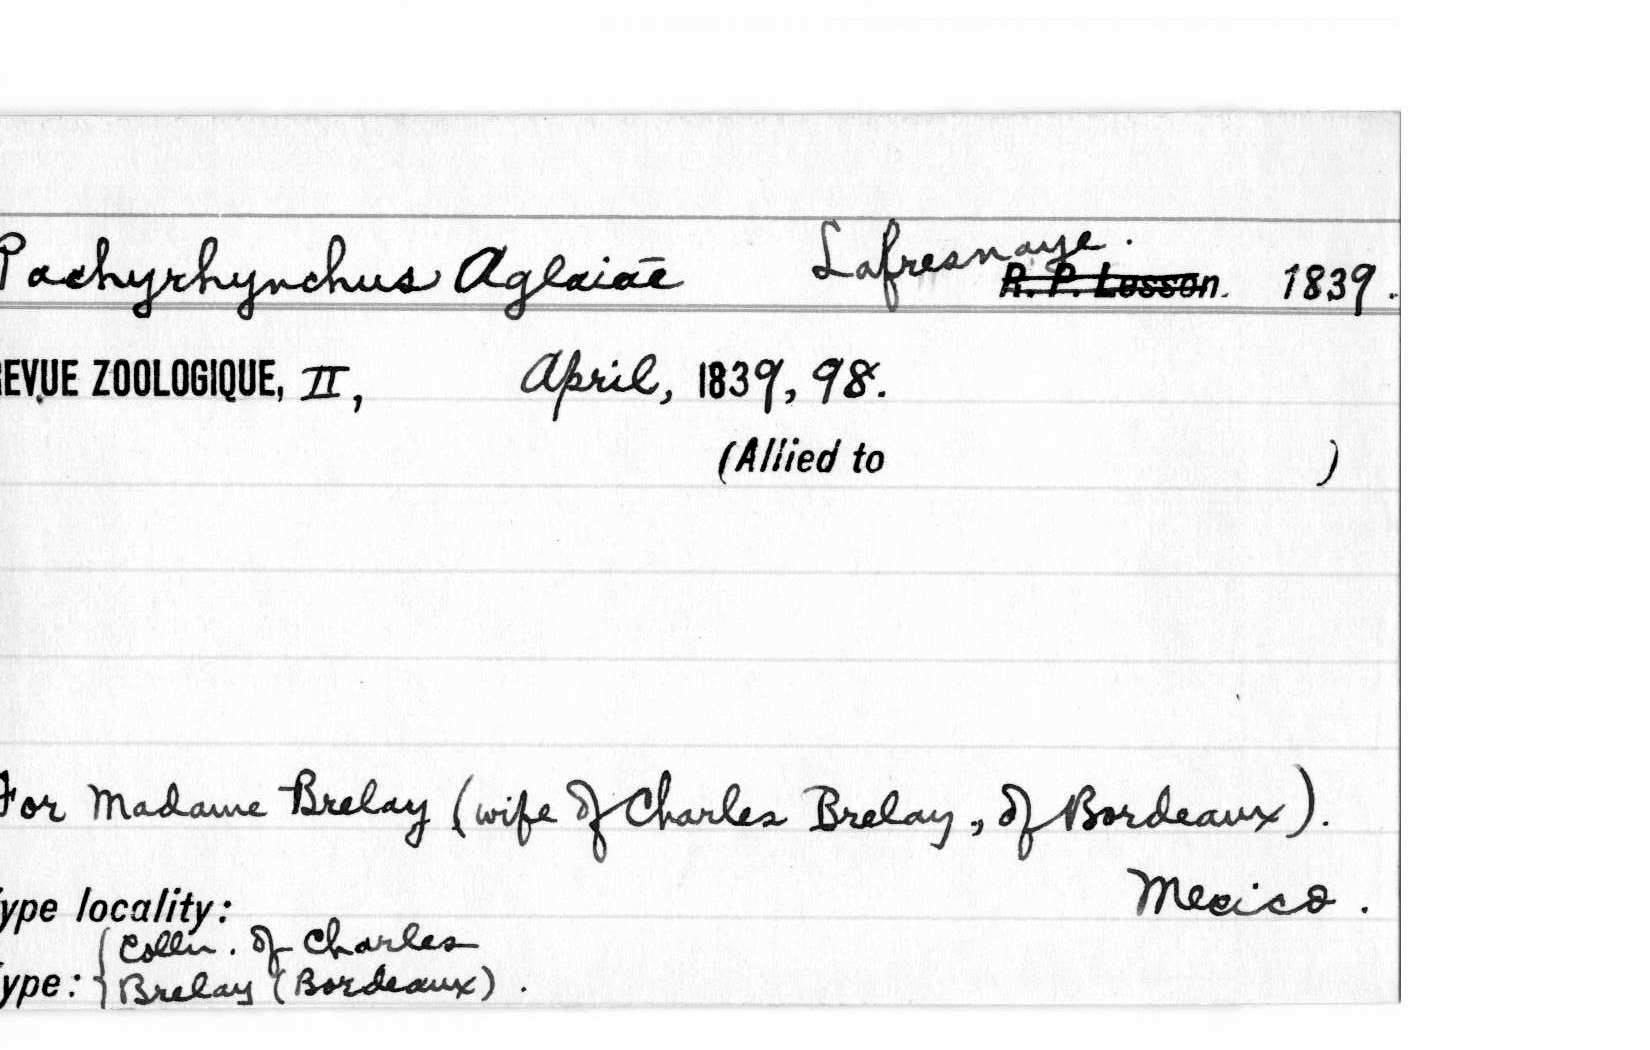 Pachyrhynchus Aglaiae Lafresnaye. R. P. Lesson. 1839.
REVUE ZOOLOGIQUE, II, April, 1839, 98.
(Allied to )
For Madame Brelay (wife of Charles Brelay, of Bordeaux).
Mexico.
ype locality:
Colln. of Charles
ype: Brelay (Bordeaux).